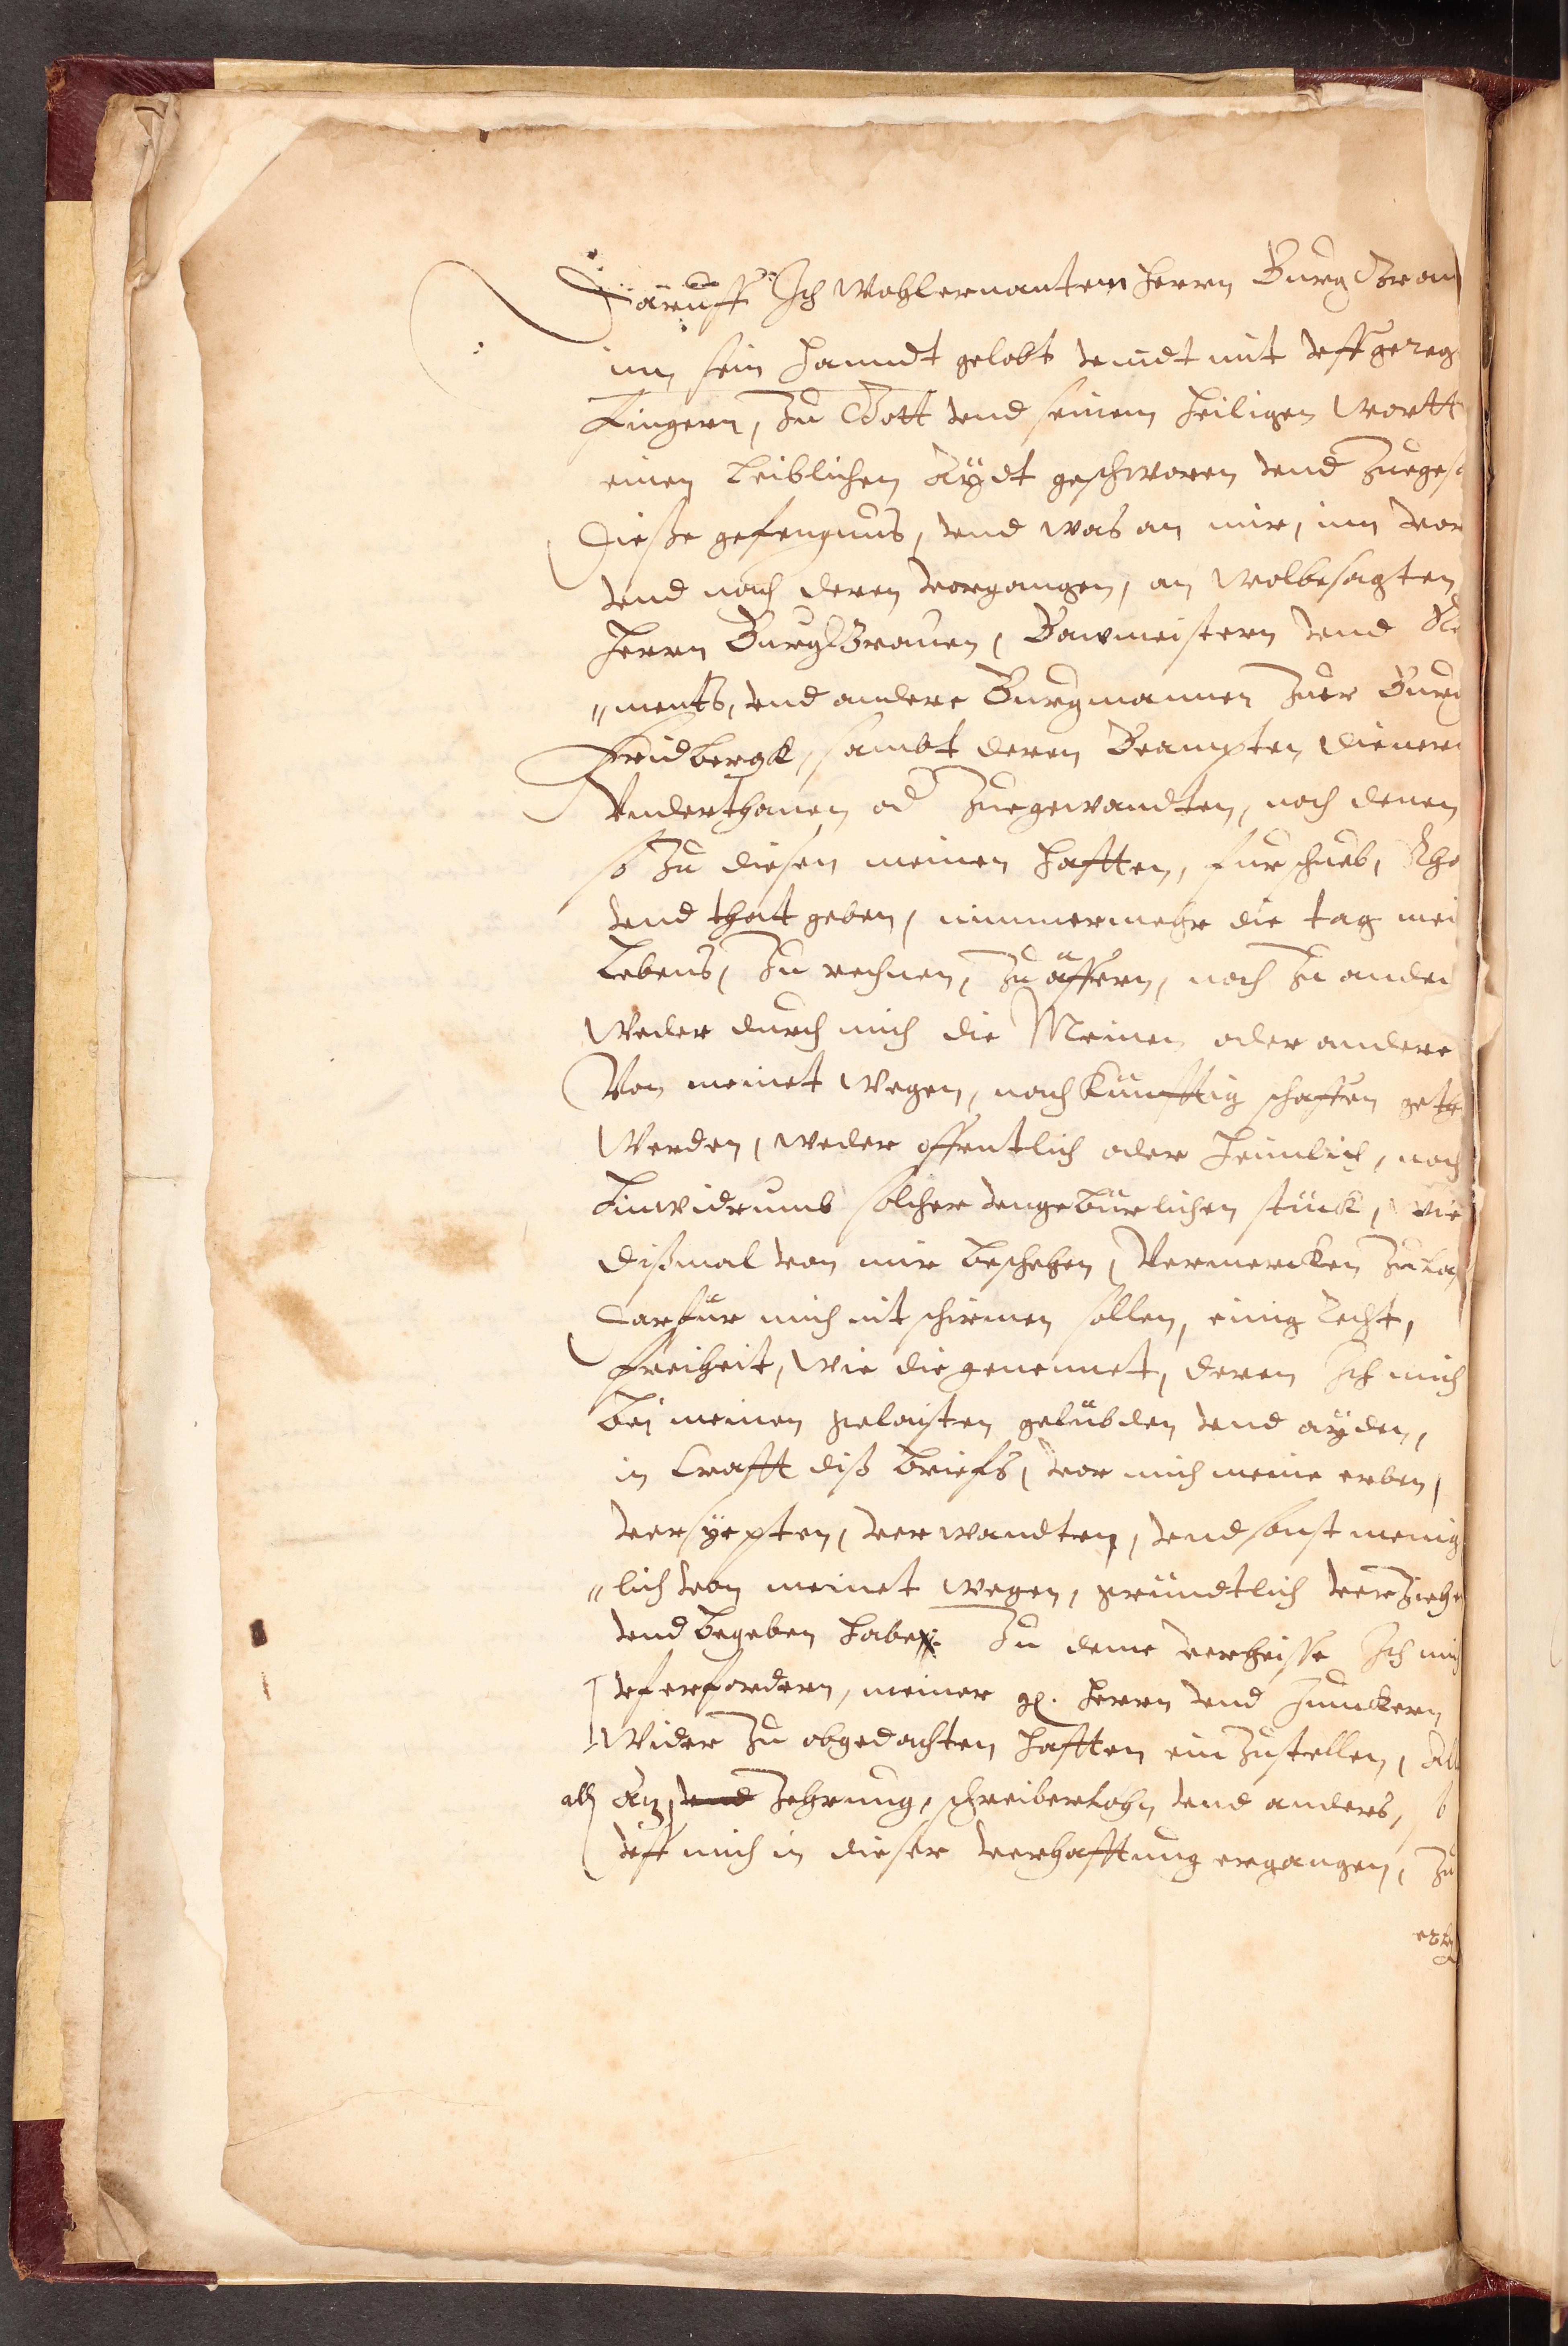 Daruff Ich Wohlernantem Herrn Burg Grau
inn sein Handt gelobt vnndt mit vffgereg
Fingern, zu Gott vnd seinem heiligen Wortt
einen Leiblichen Aydt geschworen vnd zuegesa
Dieße gefengnus, vnd was an mir, inn vor
vnd nach deren vorgangen, an Wolbesagten
Herrn BurgGrauen, Bawmeistern vnd Re
„ments, vnd andere Burgmannen zuer Burg
Fridbergk, sambt deren Beampten dienern
Vnderthanen od zuegewandten, noch denen
so zu diesen meinen Hafften, furschueb, Rha
vnd that geben, nimmermehr die tag mei
Lebens, zu rechnen, zu äffern, noch zu ander
Weder durch mich die Meinen oder andere
Von meinet wegen, noch künfftig schaffen geth
Werden, weder offentlich oder Heimlich, noch
hinwidrumb solcher vngebürlichen stück, wie
dißmal von mir beschehen, Vermercken zu laß
Darfür mich nit schirmen sollen, einig Recht,
Freiheit, Wie die genennet, deren Ich mich
bei meinen gelaisten gelübden vnd ayden,
in Crafft diß briefs, vor mich meine erben,
versyepten, verwandten, vnd sonst menig
„lich von meinet wegen, gründtlich verziehe
vnd begeben habe. Zu deme verheisse Ich mich
vf erfordern, meiner gl. Herrn vnd Junckern
Wider zu obgedachten Hafften ein zustellen, All
alß Atz, vnd Zehrung, schreiberlohn vnd anders, so
vff mich in dieser verhafftung ergangen, zu